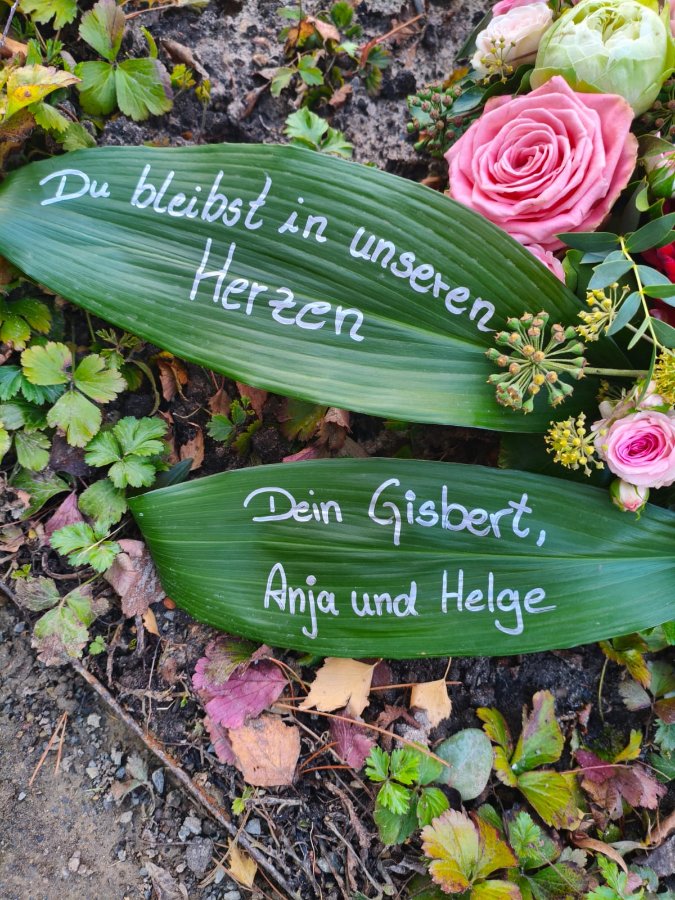 Du bleibst in unseren
Herzen
Dein Gisbert,
Anja und Helge